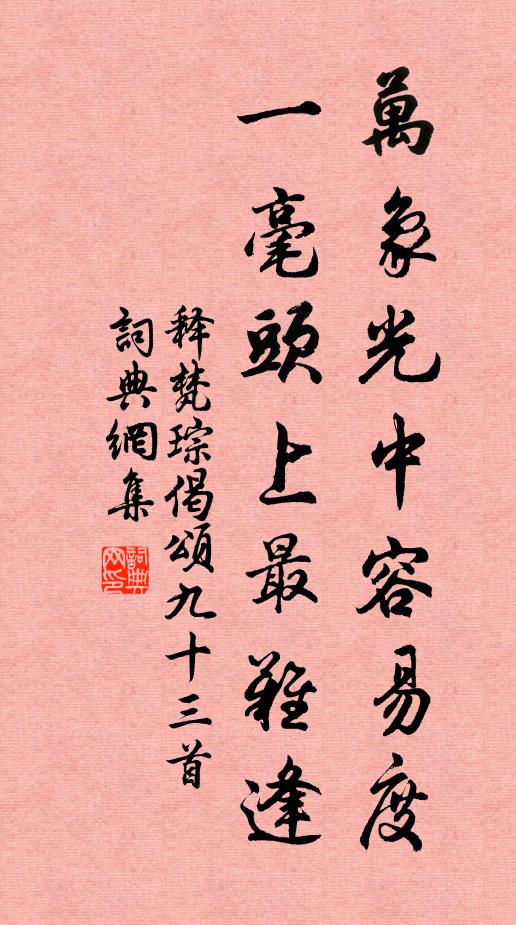 萬象光中容易度
一毫頭上最難逢
释梵琮偈頌九十三首
詞典網集
詞典网印